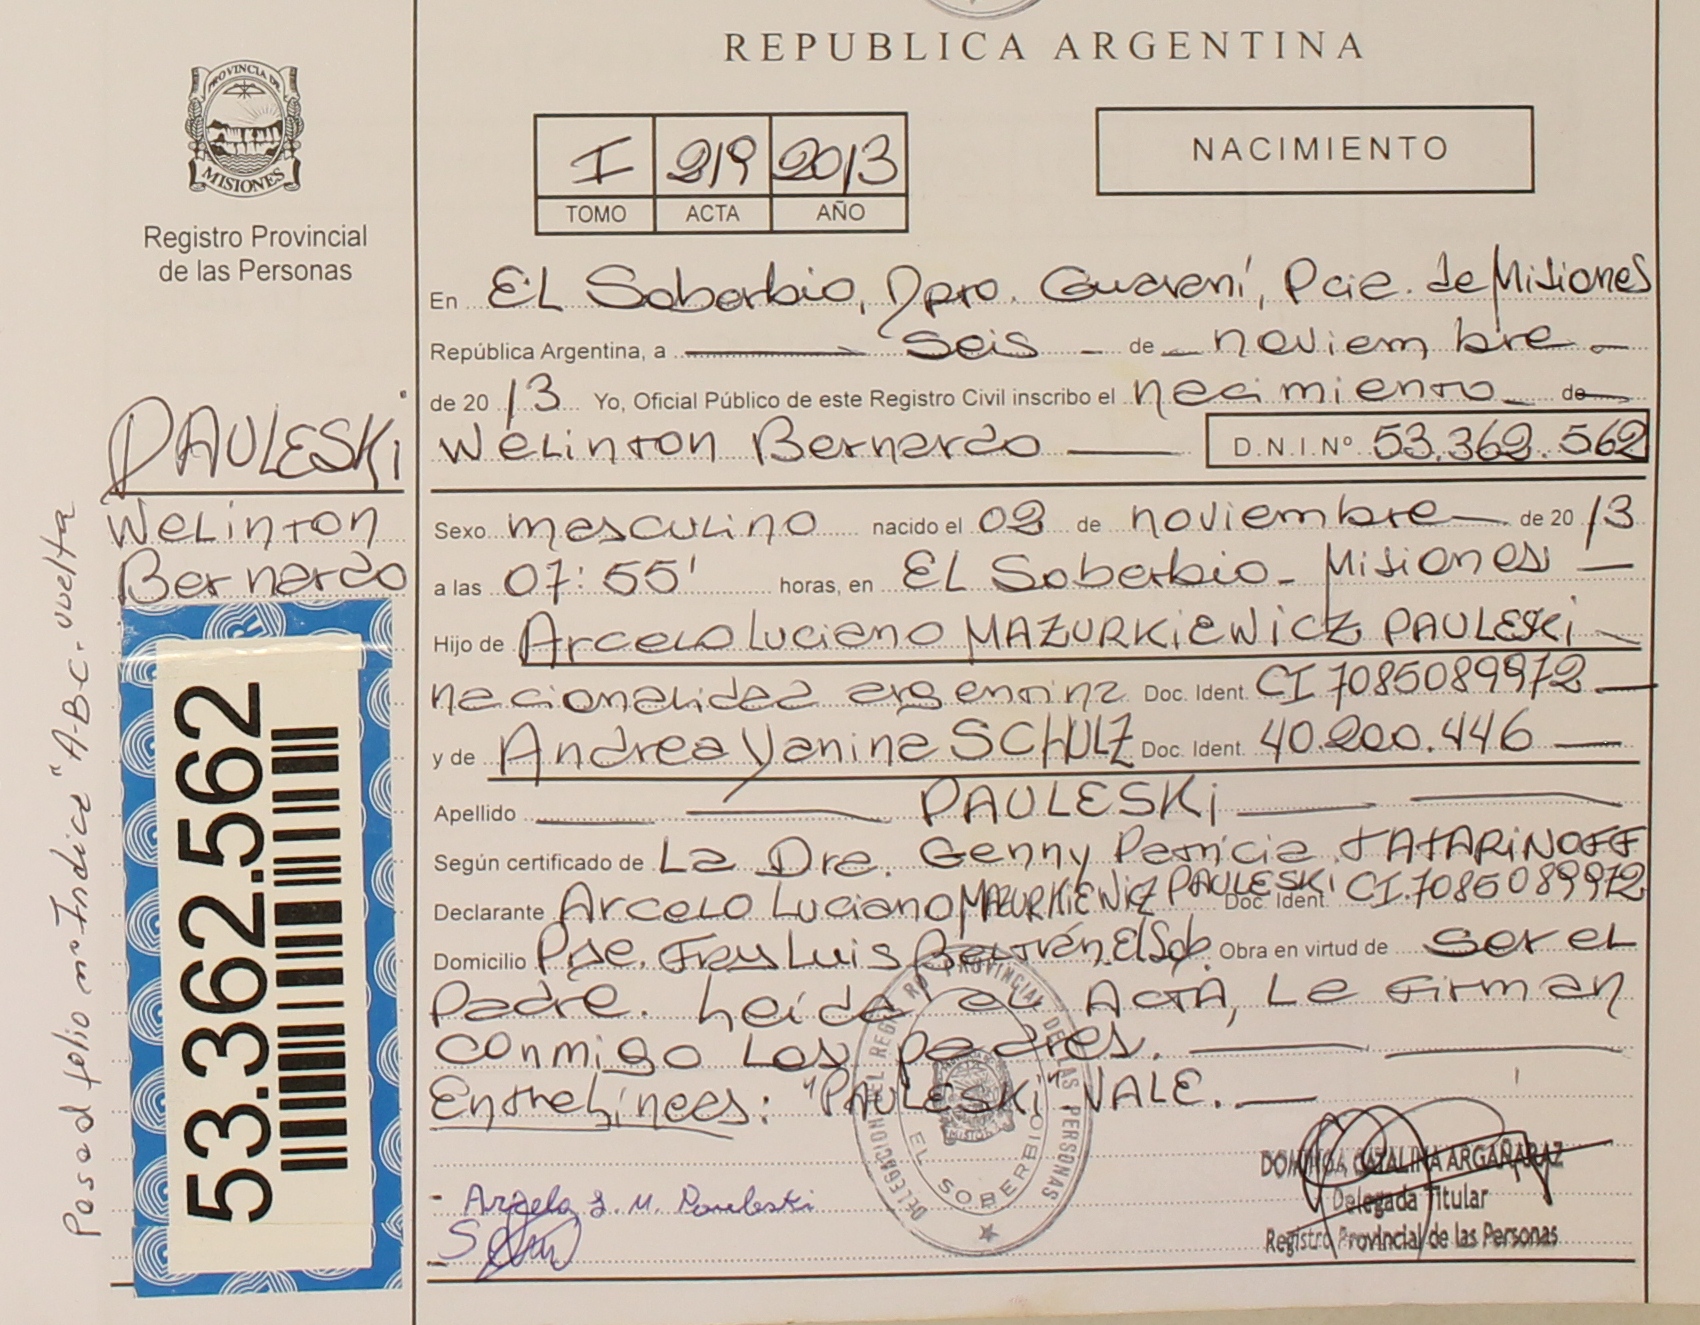 REPUBLICA ARGENTINA
PROVINCIA DE
MISIONES
Registro Provincial
de las Personas
I 219 2013
TOMO ACTA AÑO
NACIMIENTO
En EL Soberbio, Dpto. Guaraní, Pcia. de Misiones
República Argentina, a seis de noviembre
de 2013 Yo, Oficial Público de este Registro Civil inscribo el nacimiento de
Welinton Bernardo D.N.I.Nº 53.362.562
PAULESKi
Welinton
Bernardo
Sexo masculino nacido el 02 de noviembre de 2013
a las 07:55' horas, en EL Soberbio - Misiones
Hijo de Arcelo Luciano MAZURKIEWICZ PAULESKi
nacionalidad argentina Doc. Ident. CI 7085089972
y de Andrea Yanina SCHULZ Doc. Ident. 40.200.446
Apellido PAULESKi
Según certificado de La Dra. Genny Patricia TATARiNOFF
Declarante Arcelo Luciano MAZURKIEWicz PAULESKi Doc. Ident. CI.7085089972
Domicilio Pje. Fray Luis Beltrán. El Sob. Obra en virtud de ser el
padre. Leída el ACTA, La firman
conmigo Los padres.
Entrelíneas: "PAULESKi" VALE.
Pasad folio mº Indice "A-B-C- vuelta
53.362.562
DELEGACION DEL REGISTRO PROVINCIAL DE LAS PERSONAS
EL SOBERBIO
- Arzelo L. M. Pauleski
DOMINGA CATALINA ARGAÑARAZ
Delegada Titular
Registro Provincial de las Personas